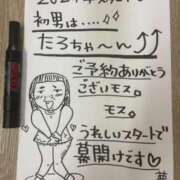 初男は‥‥
たろちゃ〜ん⤴⤴
ご予約ありがとう
ございモス。
モス。
うれしいスタートで
幕開けです♡